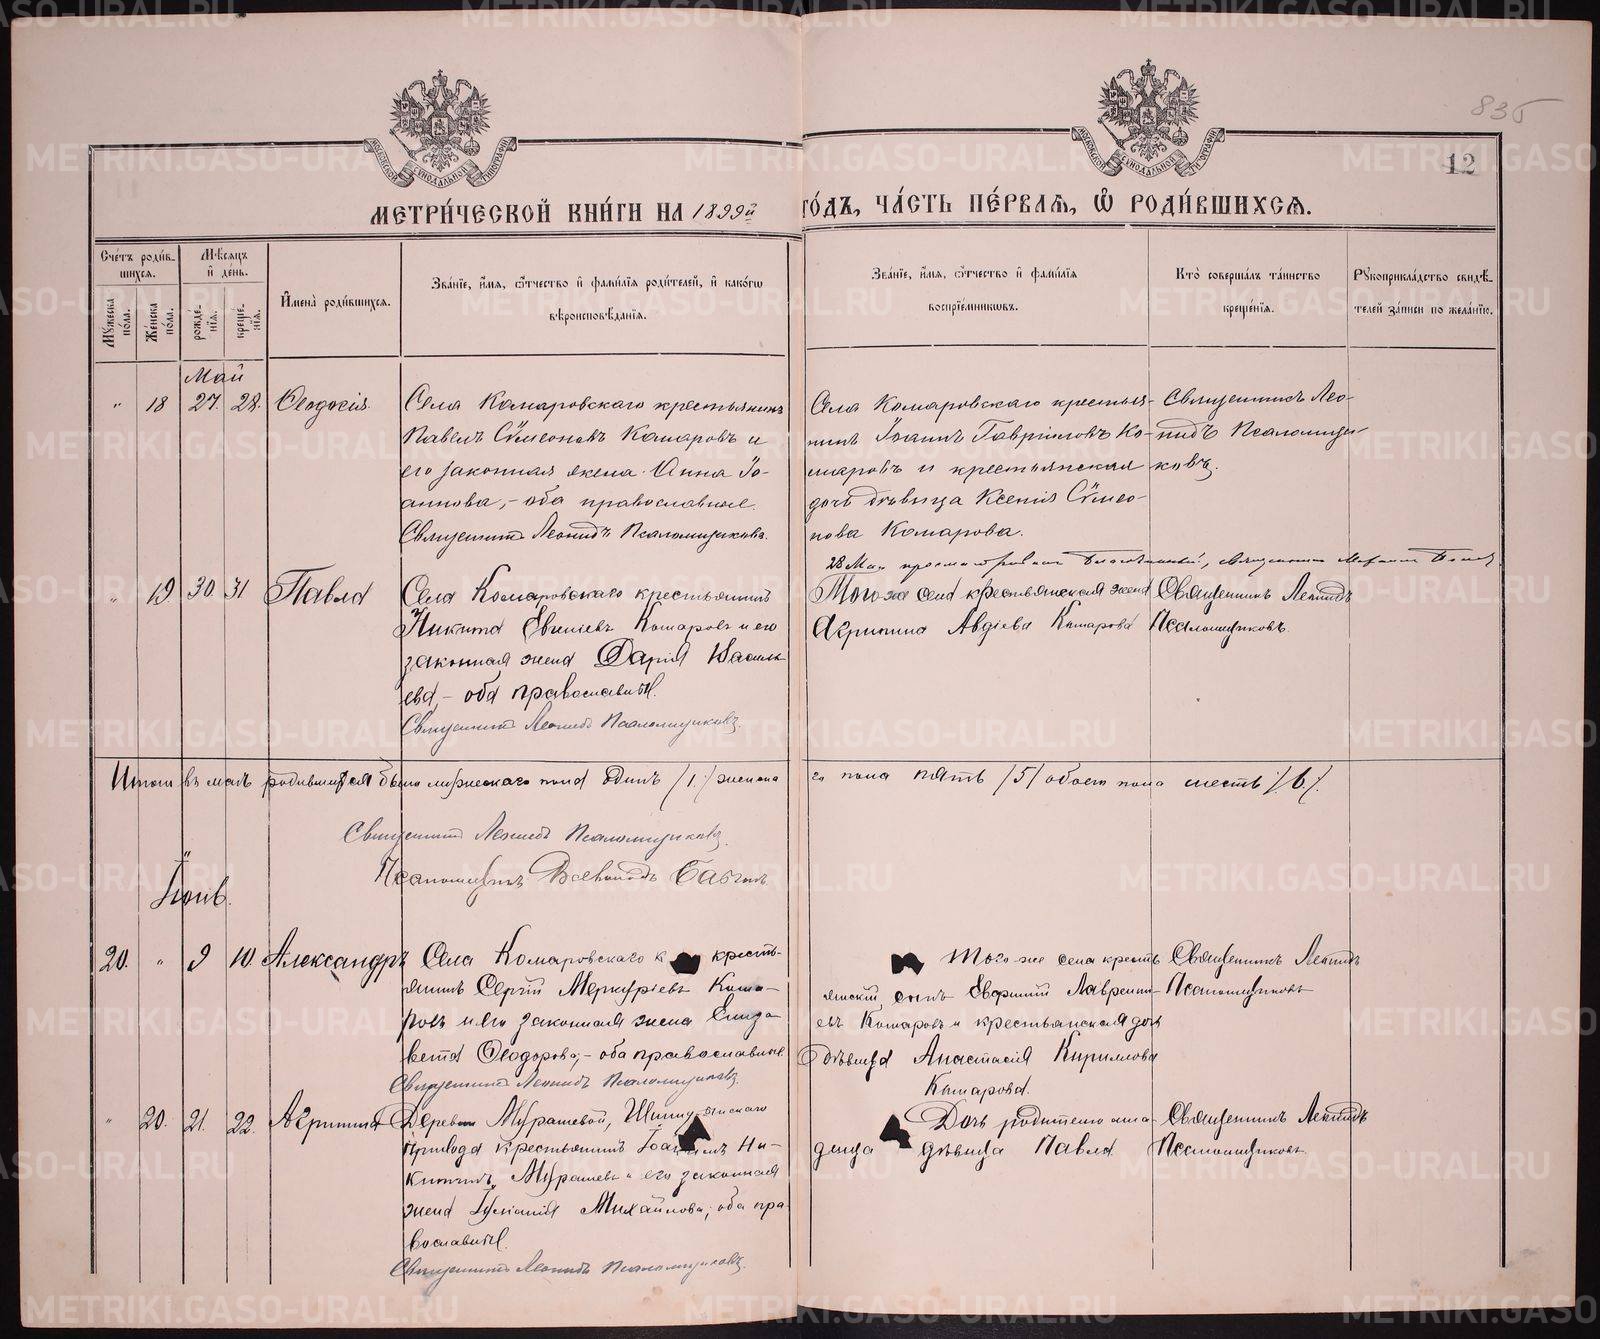 835
12
МЕТРИ́ЧЕСКОЙ КНИ́ГИ НА 1899й
ГО́ДЪ, ЧА́СТЬ ПЕ́РВАѦ, Ѡ҆ РОДИ́ВШИХСѦ.
Сче́тъ роди́в-
шихсѧ.
Мꙋжеска по́ла.
Же́нска по́ла.
Мѣ́сѧцъ и҆ де́нь.
рожде́-нїѧ.
креще́-нїѧ.
И҆мена̀ роди́вшихсѧ.
Зва́нїе, и҆́мѧ, ѻ҆́тчество и҆ фами́лїѧ роди́телей, и҆ како́гѡ
вѣроисповѣ́данїѧ.
Зва́нїе, и҆́мѧ, ѻ҆́тчество и҆ фами́лїѧ
воспрїе́мникѡвъ.
Кто̀ соверша́лъ та́инство
креще́нїѧ.
Рꙋкоприкла́дство свидѣ́-
телей за́писи по жела́нїю.
Май
" 18 27. 28. Ѳеодосія.
Села Комаровскаго крестьянинъ
Павелъ Сѵмеоновъ Комаровъ и
его законная жена Анна Іо-
аннова, – оба православные.
Священникъ Леонидъ Псаломщиковъ.
Села Комаровскаго крестья-
нинъ Іоаннъ Гавріиловъ Ко-
маровъ и крестьянская
дочь дѣвица Ксенія Сѵмео-
нова Комарова.
Священникъ Лео-
нидъ Псаломщи-
ковъ.
28 Мая просматривалъ Благочинный, священникъ
" 19 30 31 Павла
Села Комаровскаго крестьянинъ
Никита Евѳиміевъ Комаровъ и его
законная жена Дарія Василь-
ева, – оба православные.
Священникъ Леонидъ Псаломщиковъ.
Того же села крестьянская жена
Агрипина Авдіева Комарова
Священникъ Леонидъ
Псаломщиковъ.
Итого въ маѣ родившихся было мужескаго пола одинъ /1./ женска
го пола пять /5/ обоего пола шесть /6/.
Священникъ Леонидъ Псаломщиковъ.
Псаломщикъ Всеволодъ
Іюнь.
20. " 9 10. Александръ
Села Комаровскаго к кресть-
янинъ Сергій Меркуріевъ Кома-
ровъ и его законная жена Елиза-
вета Ѳеодорова, – оба православные
Священникъ Леонидъ Псаломщиковъ.
Того-же села кресть
янскій сынъ Евѳимій Лаврентi-
евъ Комаровъ и крестьянская дочь
дѣвица Анастасія Кириллова
Комарова.
Священникъ Леонидъ
Псаломщиковъ
" 20. 21. 22. Агрипина
Деревни Мурашевой,
прихода крестьянинъ Іоакимъ Ни-
китинъ Мурашевъ и его законная
жена Іуліанія Михайлова, оба пра-
вославные.
Священникъ Леонидъ Псаломщиковъ.
Дочь родителю мла-
денца дѣвица Павла
Священникъ Леонидъ
Псаломщиковъ
METRIKI.GASO-URAL.RU